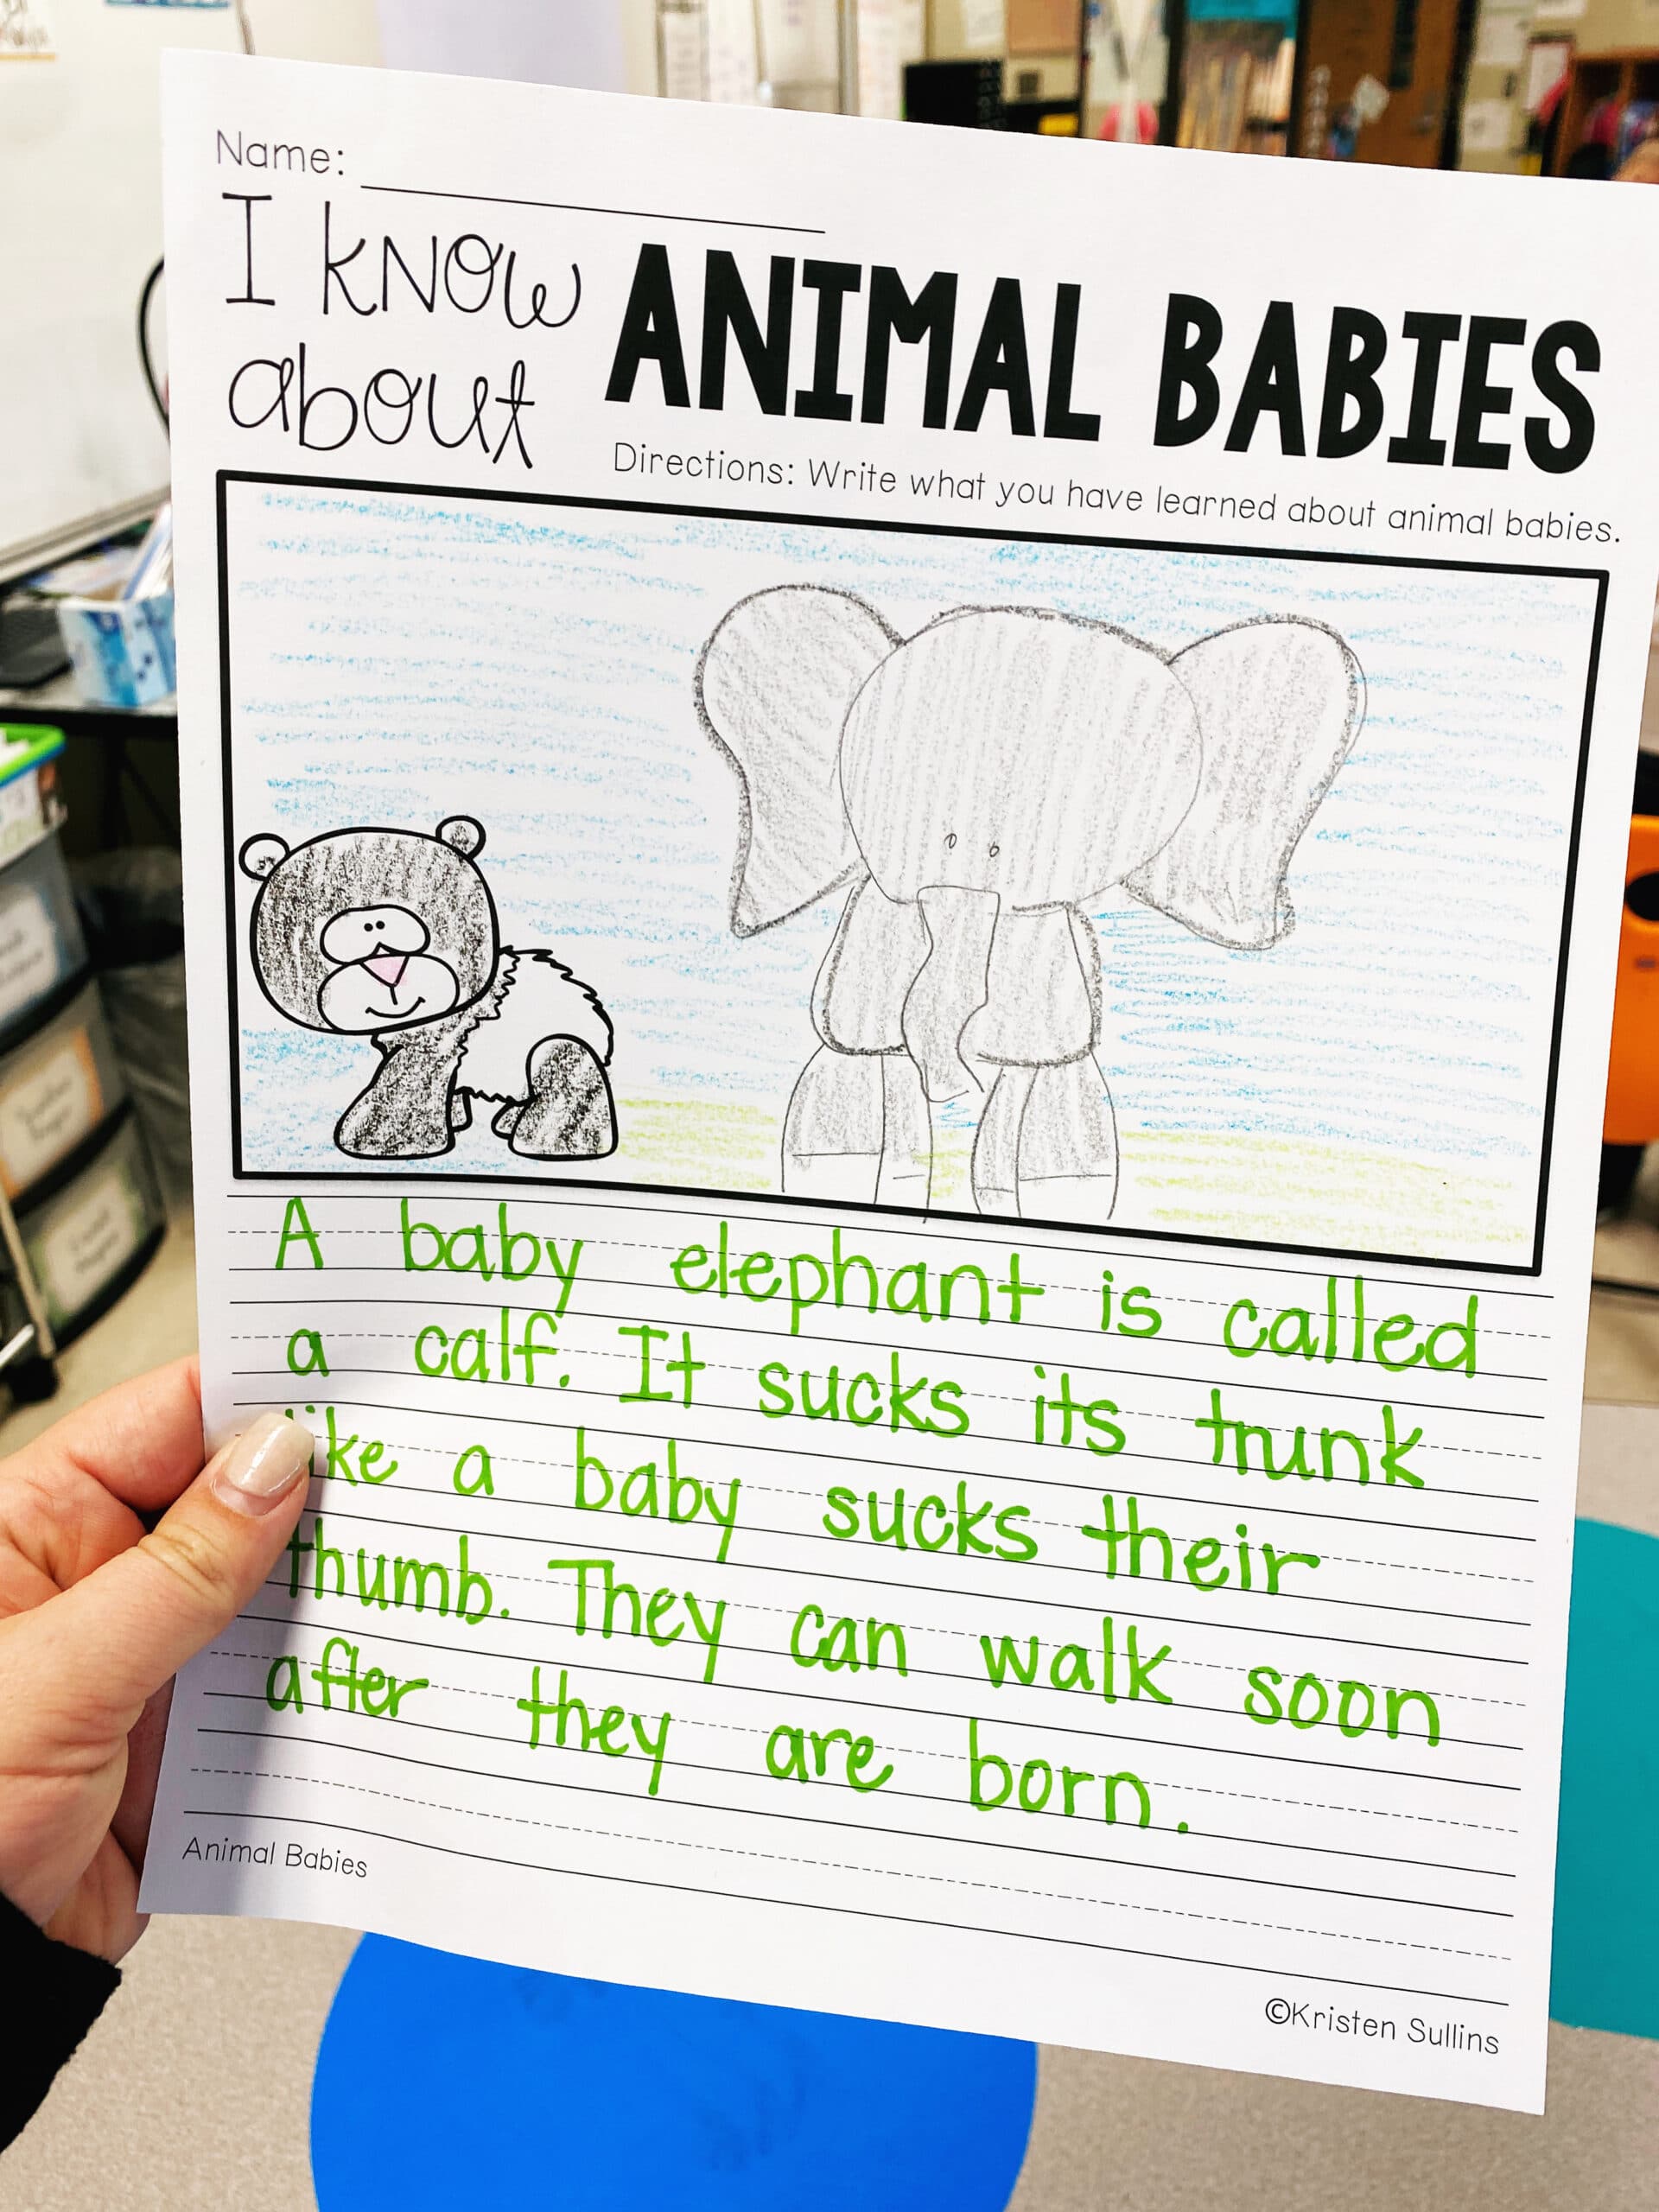 Name:
I know about ANIMAL BABIES
Directions: Write what you have learned about animal babies.
A baby elephant is called
a calf. It sucks its trunk
like a baby sucks their
thumb. They can walk soon
after they are born.
Animal Babies
©Kristen Sullins